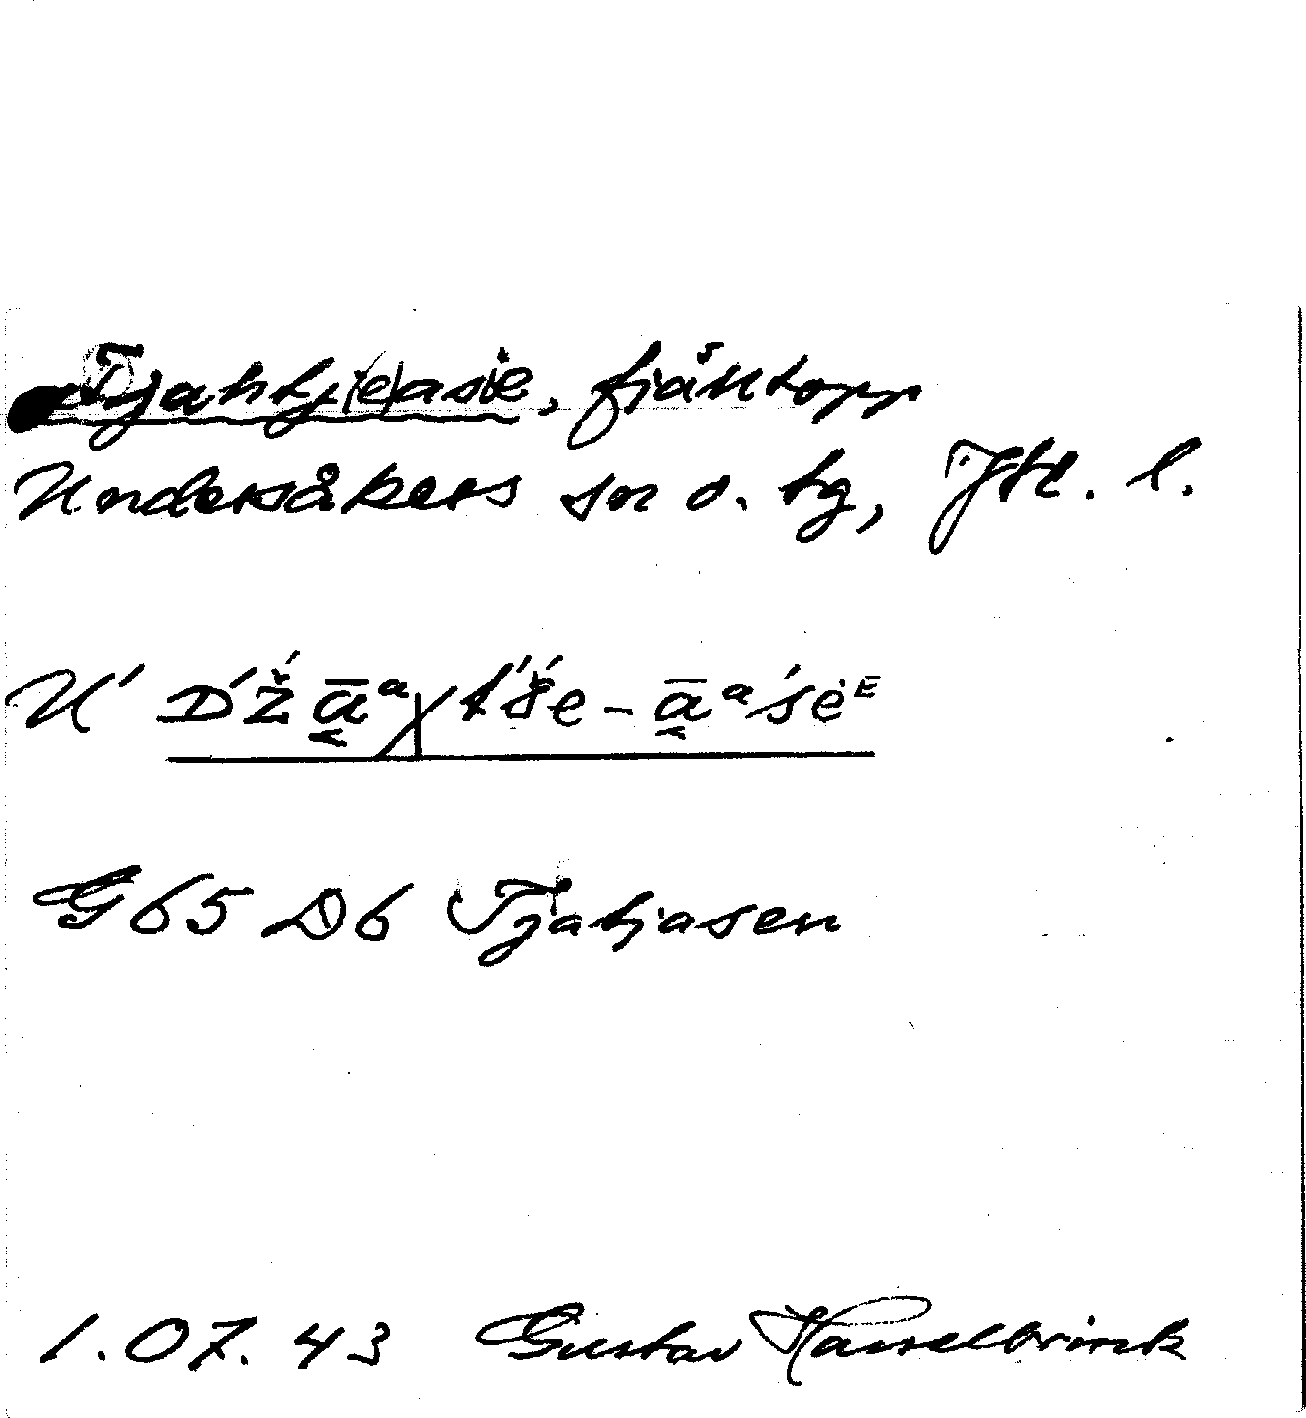 Tjahtj(e)asië, fjälltopp
Undersåkers sn o. tg, Jtl. l.
U' D́ž́ā̭ᵃχt́š́e-ā̭ᵃśėᴱ
G65 D6 Tjatjasen
1.07.43 Gustav Hasselbrink